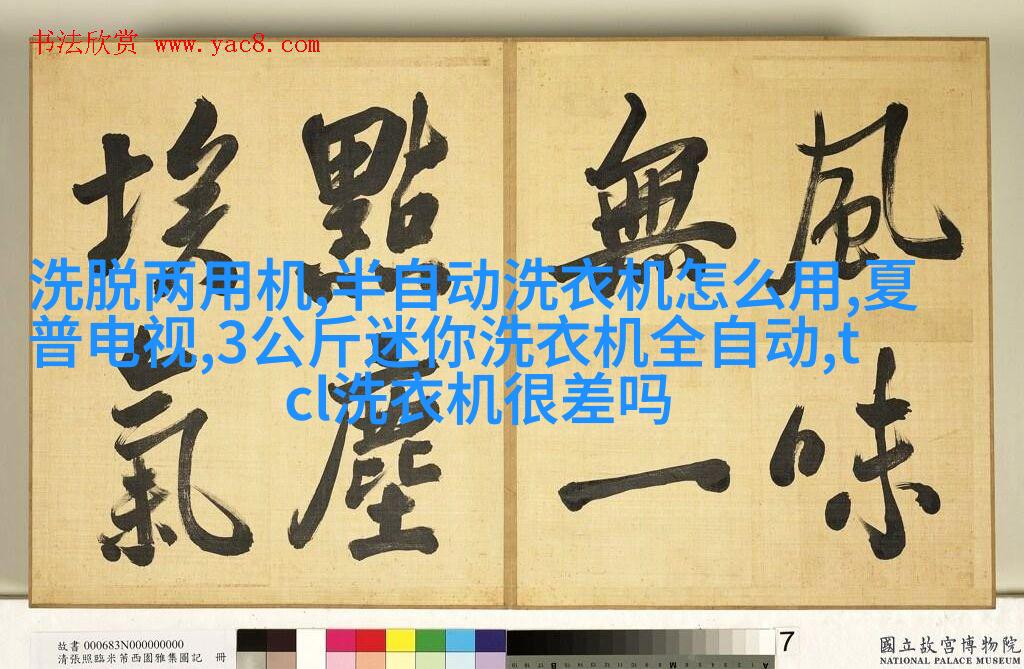 书法欣赏 www.yac8.com
風味
無一
點塵
埃氣
洗脱两用机,半自动洗衣机怎么用,夏
普电视,3公斤迷你洗衣机全自动,t
cl洗衣机很差吗
故書 000683N000000000
清張照臨米芾西園雅集圖記 冊
7
國立故宮博物院
NATIONAL PALACE MUSEUM